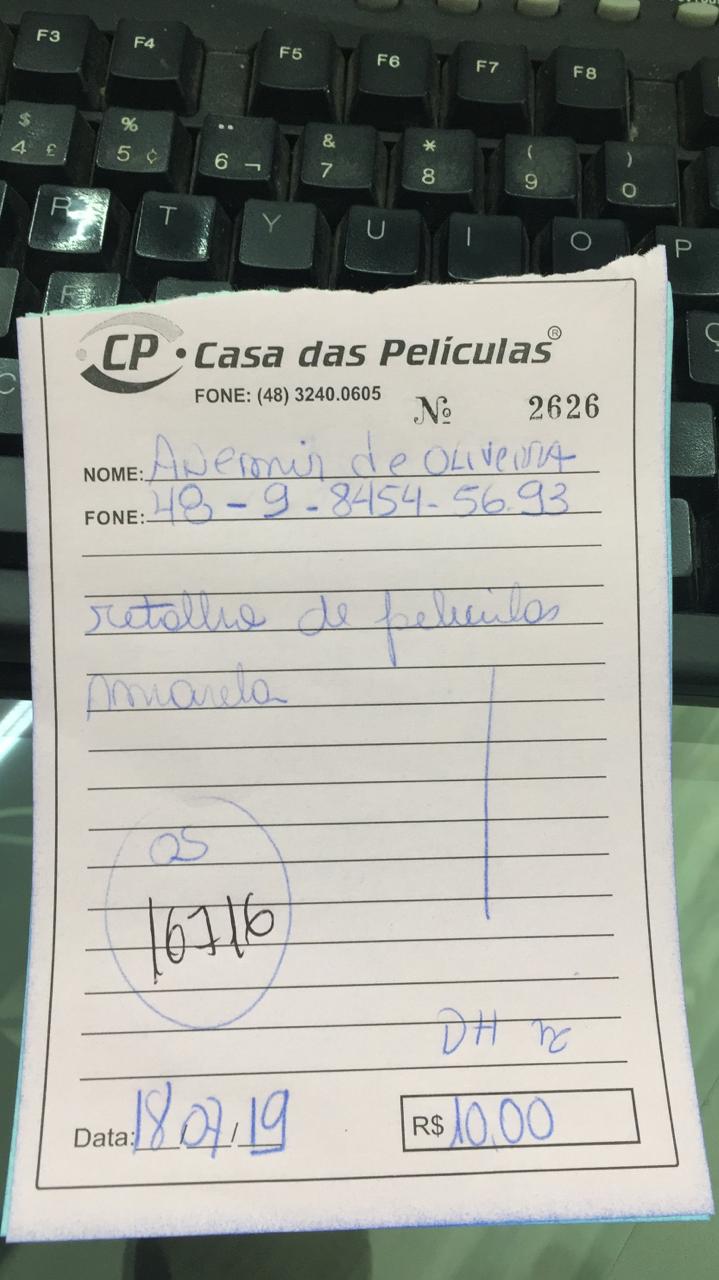 F3 F4 F5 F6 F7 F8
$ 4 £ % 5 ¢ ¨ 6 ¬ & 7 * 8 ( 9 ) 0
R T Y U I O P
F
C Ç
CP • Casa das Películas ®
FONE: (48) 3240.0605
Nº 2626
NOME: de OLiveirA
FONE: 48 - 9 - 8454-56.93
retalho de películas
Amarela
OS
16716
DH
Data: 18/07/19
R$ 10,00